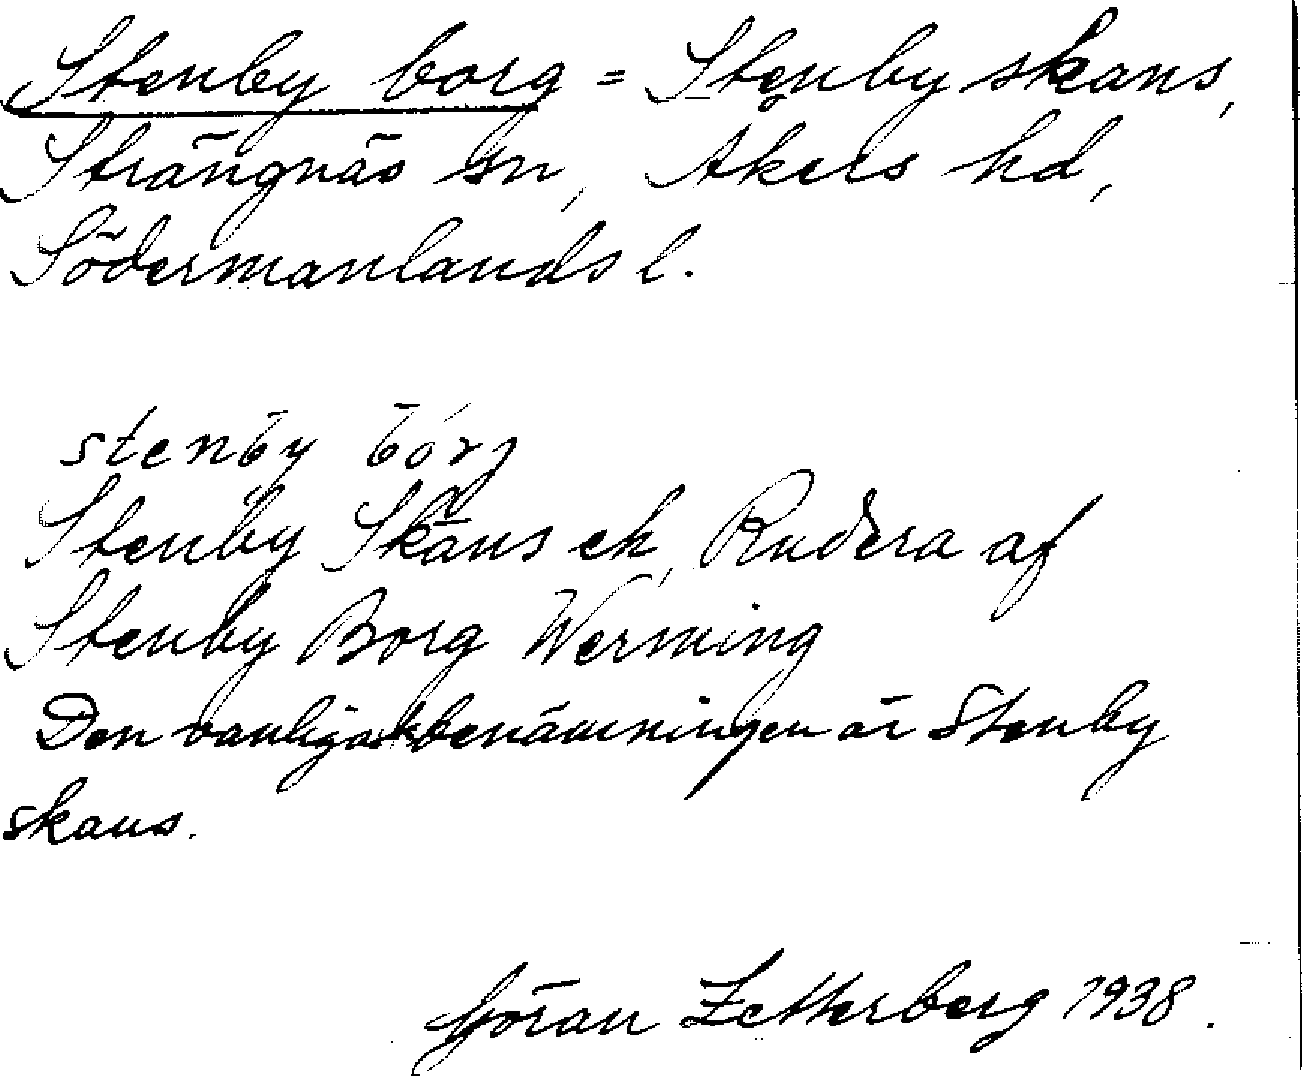 Stenby borg = Stenby skans,
Strängnäs sn, Åkers hd,
Södermanlands l.
stenby bórj
Stenby Skans ek, Rudera af
Stenby Borg Werming
Den vanligaste benämningen är Stenby
skans.
Göran Zetterberg 1938.